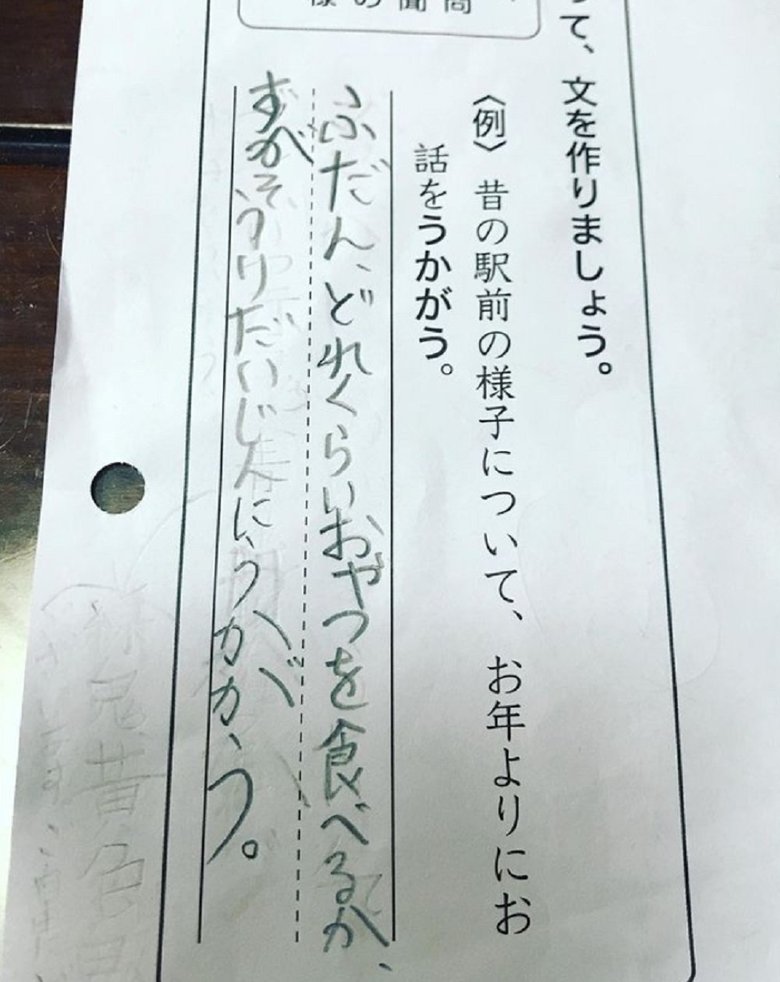 って、文を作りましょう。
〈例〉昔の駅前の様子について、お年よりにお
話をうかがう。
ふだん、どれくらいおやつを食べるか、
すがそうりだいじんにうかがう。